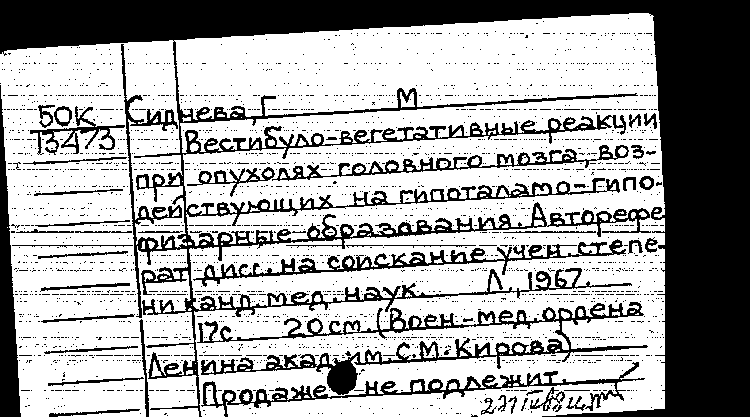 50К Сиднева, Г М
13473 Вестибуло-вегетативные реакции
при опухолях головного мозга, воз-
действующих на гипоталамо-гипо-
физарные образования. Авторефе
рат дисс. на соискание учен. степе-
ни канд. мед. наук. Л., 1967.
17с. 20 см. (Воен.-мед. ордена
Ленина акад. им. С.М. Кирова)
Продаже не подлежит.